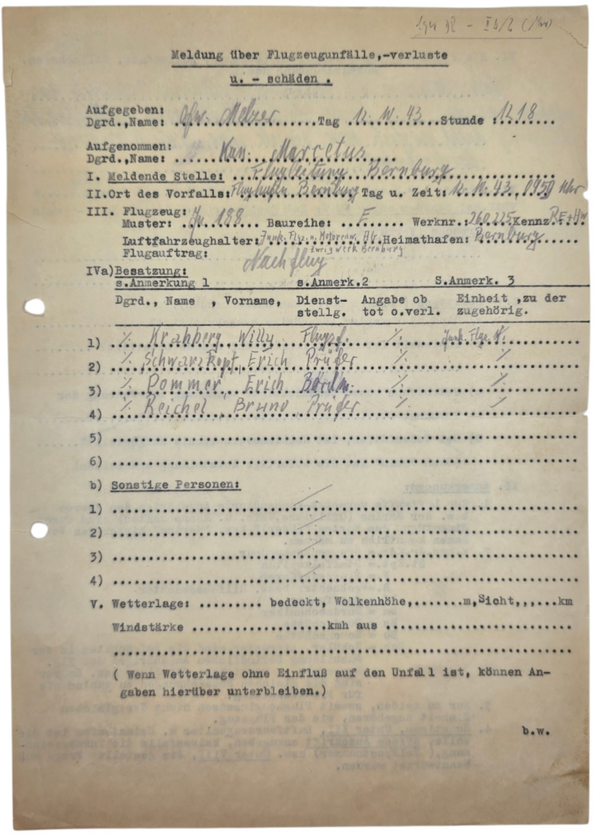 Meldung über Flugzeugunfälle,-verluste
u. - schäden .
Aufgegeben:
Dgrd.,Name: Gfw. Melzer Tag 12.10.43 Stunde : 1218
Aufgenommen:
Dgrd.,Name: Marcetus
I. Meldende Stelle: Flugleitung Bernburg
II.Ort des Vorfalls: Flughafen Bernburg Tag u. Zeit: 12.10.43, 0950 Uhr
III. Flugzeug:
Muster: Ju 188 Baureihe: E Werknr. 260225 Kennz. RE+
Luftfahrzeughalter: Junk. Flgz. u. Motorenw. AG. Heimathafen: Bernburg
Zweigwerk Bernburg
Flugauftrag: Nachflug
IVa) Besatzung:
s.Anmerkung 1 s.Anmerk.2 S.Anmerk. 3
Dgrd., Name , Vorname, Dienst- Angabe ob Einheit ,zu der
stellg. tot o.verl. zugehörig.
1) ./. Krahberg Willy Flugzf. ./. Junk. Flgz. W.
2) ./. Schwarzkopf, Erich Prüfer ./. "
3) ./. Pommer, Erich Bordm. ./. "
4) ./. Reichel, Bruno Prüfer ./. "
5)
6)
b) Sonstige Personen:
1)
2)
3)
4)
V. Wetterlage: ......... bedeckt, Wolkenhöhe,.......m,Sicht,,,...km
Windstärke .....................kmh aus ..............................
( Wenn Wetterlage ohne Einfluß auf den Unfall ist, können An-
gaben hierüber unterbleiben.)
b.w.